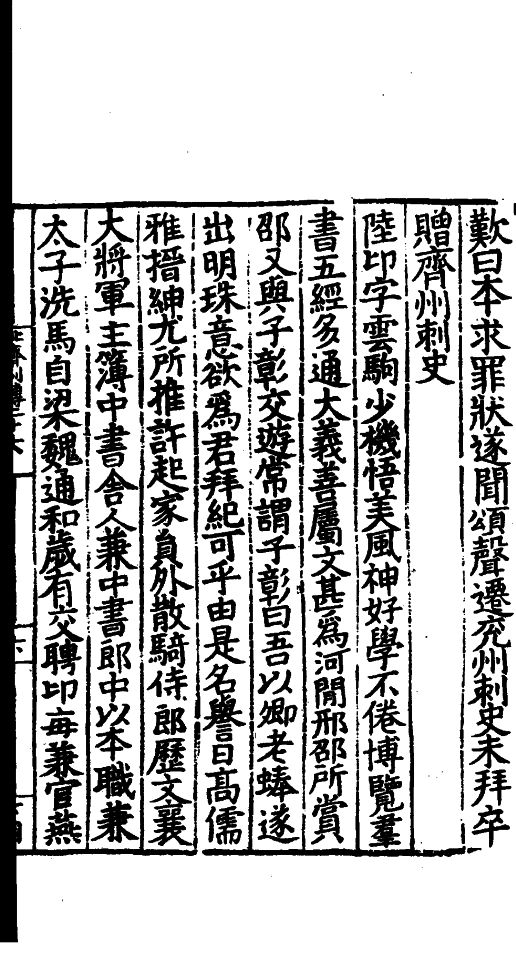 歎曰本求罪狀遂聞頌聲遷兖州刺史未拜卒
贈齊州刺史
陸卬字雲駒少機悟美風神好學不倦博覽羣
書五經多通大義善屬文甚爲河間邢邵所賞
邵又與子彰交遊常謂子彰曰吾以卿老蜯遂
出明珠意欲爲君拜紀可乎由是名譽日高儒
雅搢紳尤所推許起家員外散騎侍郎歷文襄
大將軍主簿中書舍人兼中書郎中以本職兼
太子洗馬自梁魏通和歲有交聘卬每兼官燕